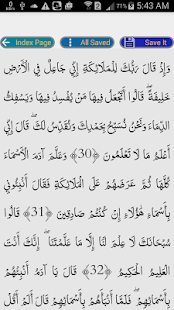 5:43 AM
Index Page
All Saved
Save It
وَإِذْ قَالَ رَبُّكَ لِلْمَلَائِكَةِ إِنِّي جَاعِلٌ فِي الْأَرْضِ
خَلِيفَةً ۖ قَالُوا أَتَجْعَلُ فِيهَا مَنْ يُفْسِدُ فِيهَا وَيَسْفِكُ
الدِّمَاءَ وَنَحْنُ نُسَبِّحُ بِحَمْدِكَ وَنُقَدِّسُ لَكَ ۖ قَالَ إِنِّي
أَعْلَمُ مَا لَا تَعْلَمُونَ ﴿30﴾ وَعَلَّمَ آدَمَ الْأَسْمَاءَ
كُلَّهَا ثُمَّ عَرَضَهُمْ عَلَى الْمَلَائِكَةِ فَقَالَ أَنْبِئُونِي
بِأَسْمَاءِ هَٰؤُلَاءِ إِنْ كُنْتُمْ صَادِقِينَ ﴿31﴾ قَالُوا
سُبْحَانَكَ لَا عِلْمَ لَنَا إِلَّا مَا عَلَّمْتَنَا ۖ إِنَّكَ أَنْتَ
الْعَلِيمُ الْحَكِيمُ ﴿32﴾ قَالَ يَا آدَمُ أَنْبِئْهُمْ
بِأَسْمَائِهِمْ ۖ فَلَمَّا أَنْبَأَهُمْ بِأَسْمَائِهِمْ قَالَ أَلَمْ أَقُلْ